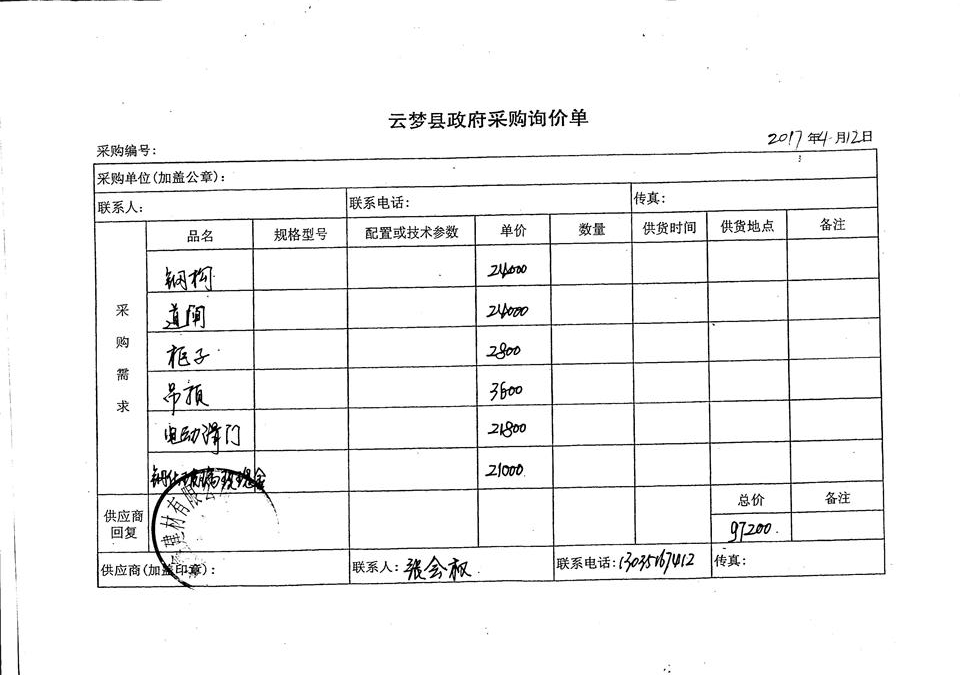 云梦县政府采购询价单
2017年4月12日
采购编号：
采购单位(加盖公章)：
联系人： 联系电话： 传真：
采购需求
品名 规格型号 配置或技术参数 单价 数量 供货时间 供货地点 备注
钢构 24000
道闸 24000
柜子 2800
吊顶 3600
电动滑门 21800
21000
供应商回复 总价 备注
97200
建材有限公
供应商(加盖印章)： 联系人：张会权 联系电话：13035167412 传真：